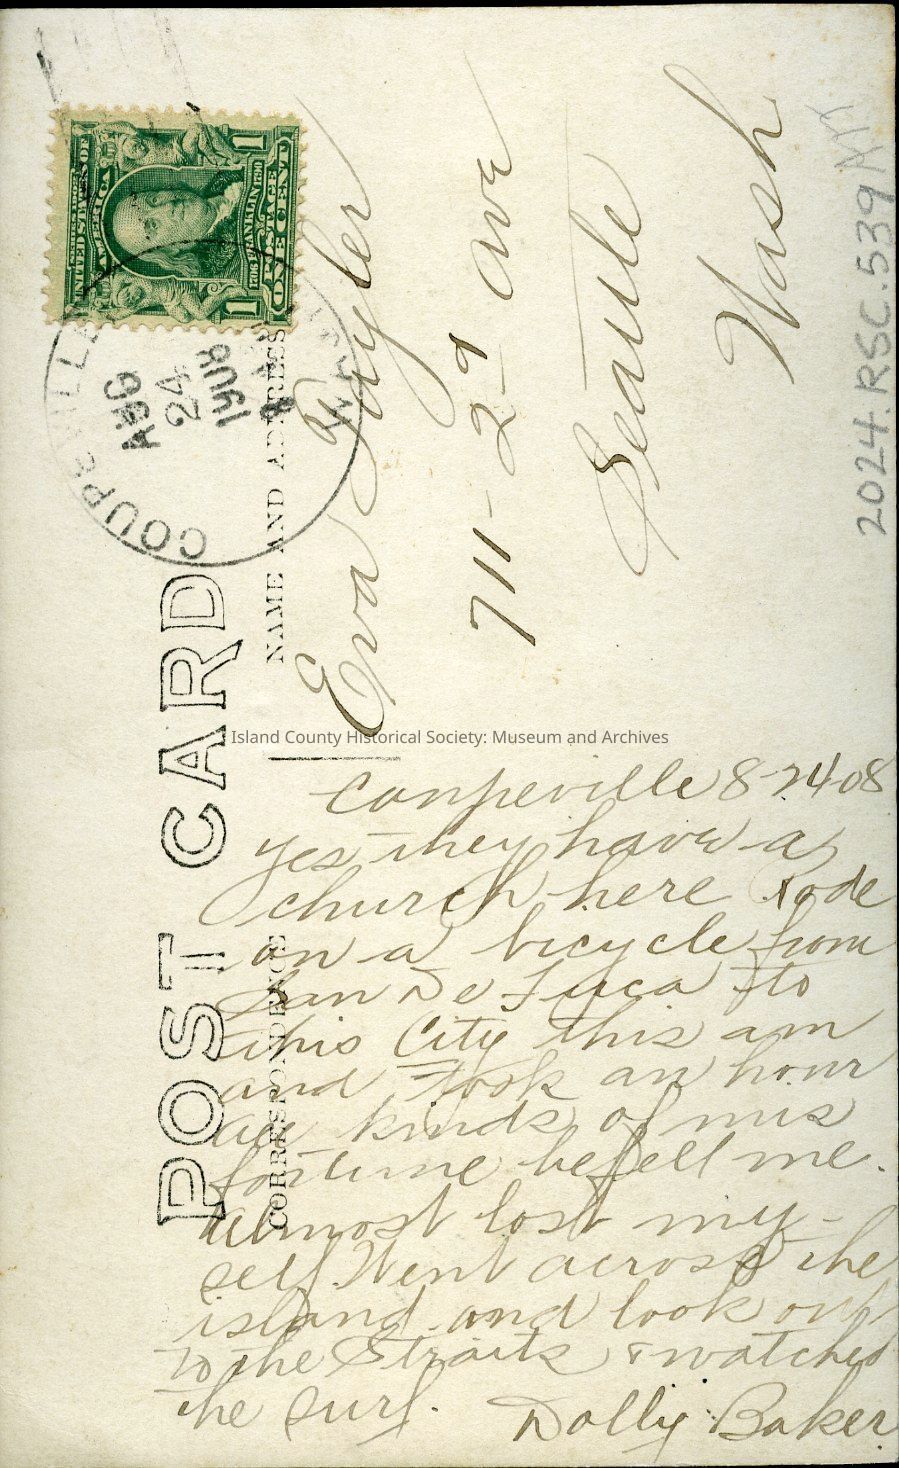 POST CARD
CORRESPONDENCE
NAME AND ADDRESS
UNITED STATES OF AMERICA
1706 FRANKLIN 1790
POSTAGE
1 ONE CENT 1
COUPEVILLE WASH
AUG
24
1908
Eva Tayler
711-2nd Ave
Seattle
Wash
2024.RSC.539
Island County Historical Society: Museum and Archives
Coupeville 8-24-08
yes they have a
church here Rode
on a bicycle from
San De Fuca to
this City this am
and took an hour
all kinds of mis
fortune befell me.
almost lost my-
self. Went across the
island and look out
to the Straits & watched
the surf.
Dolly Baker